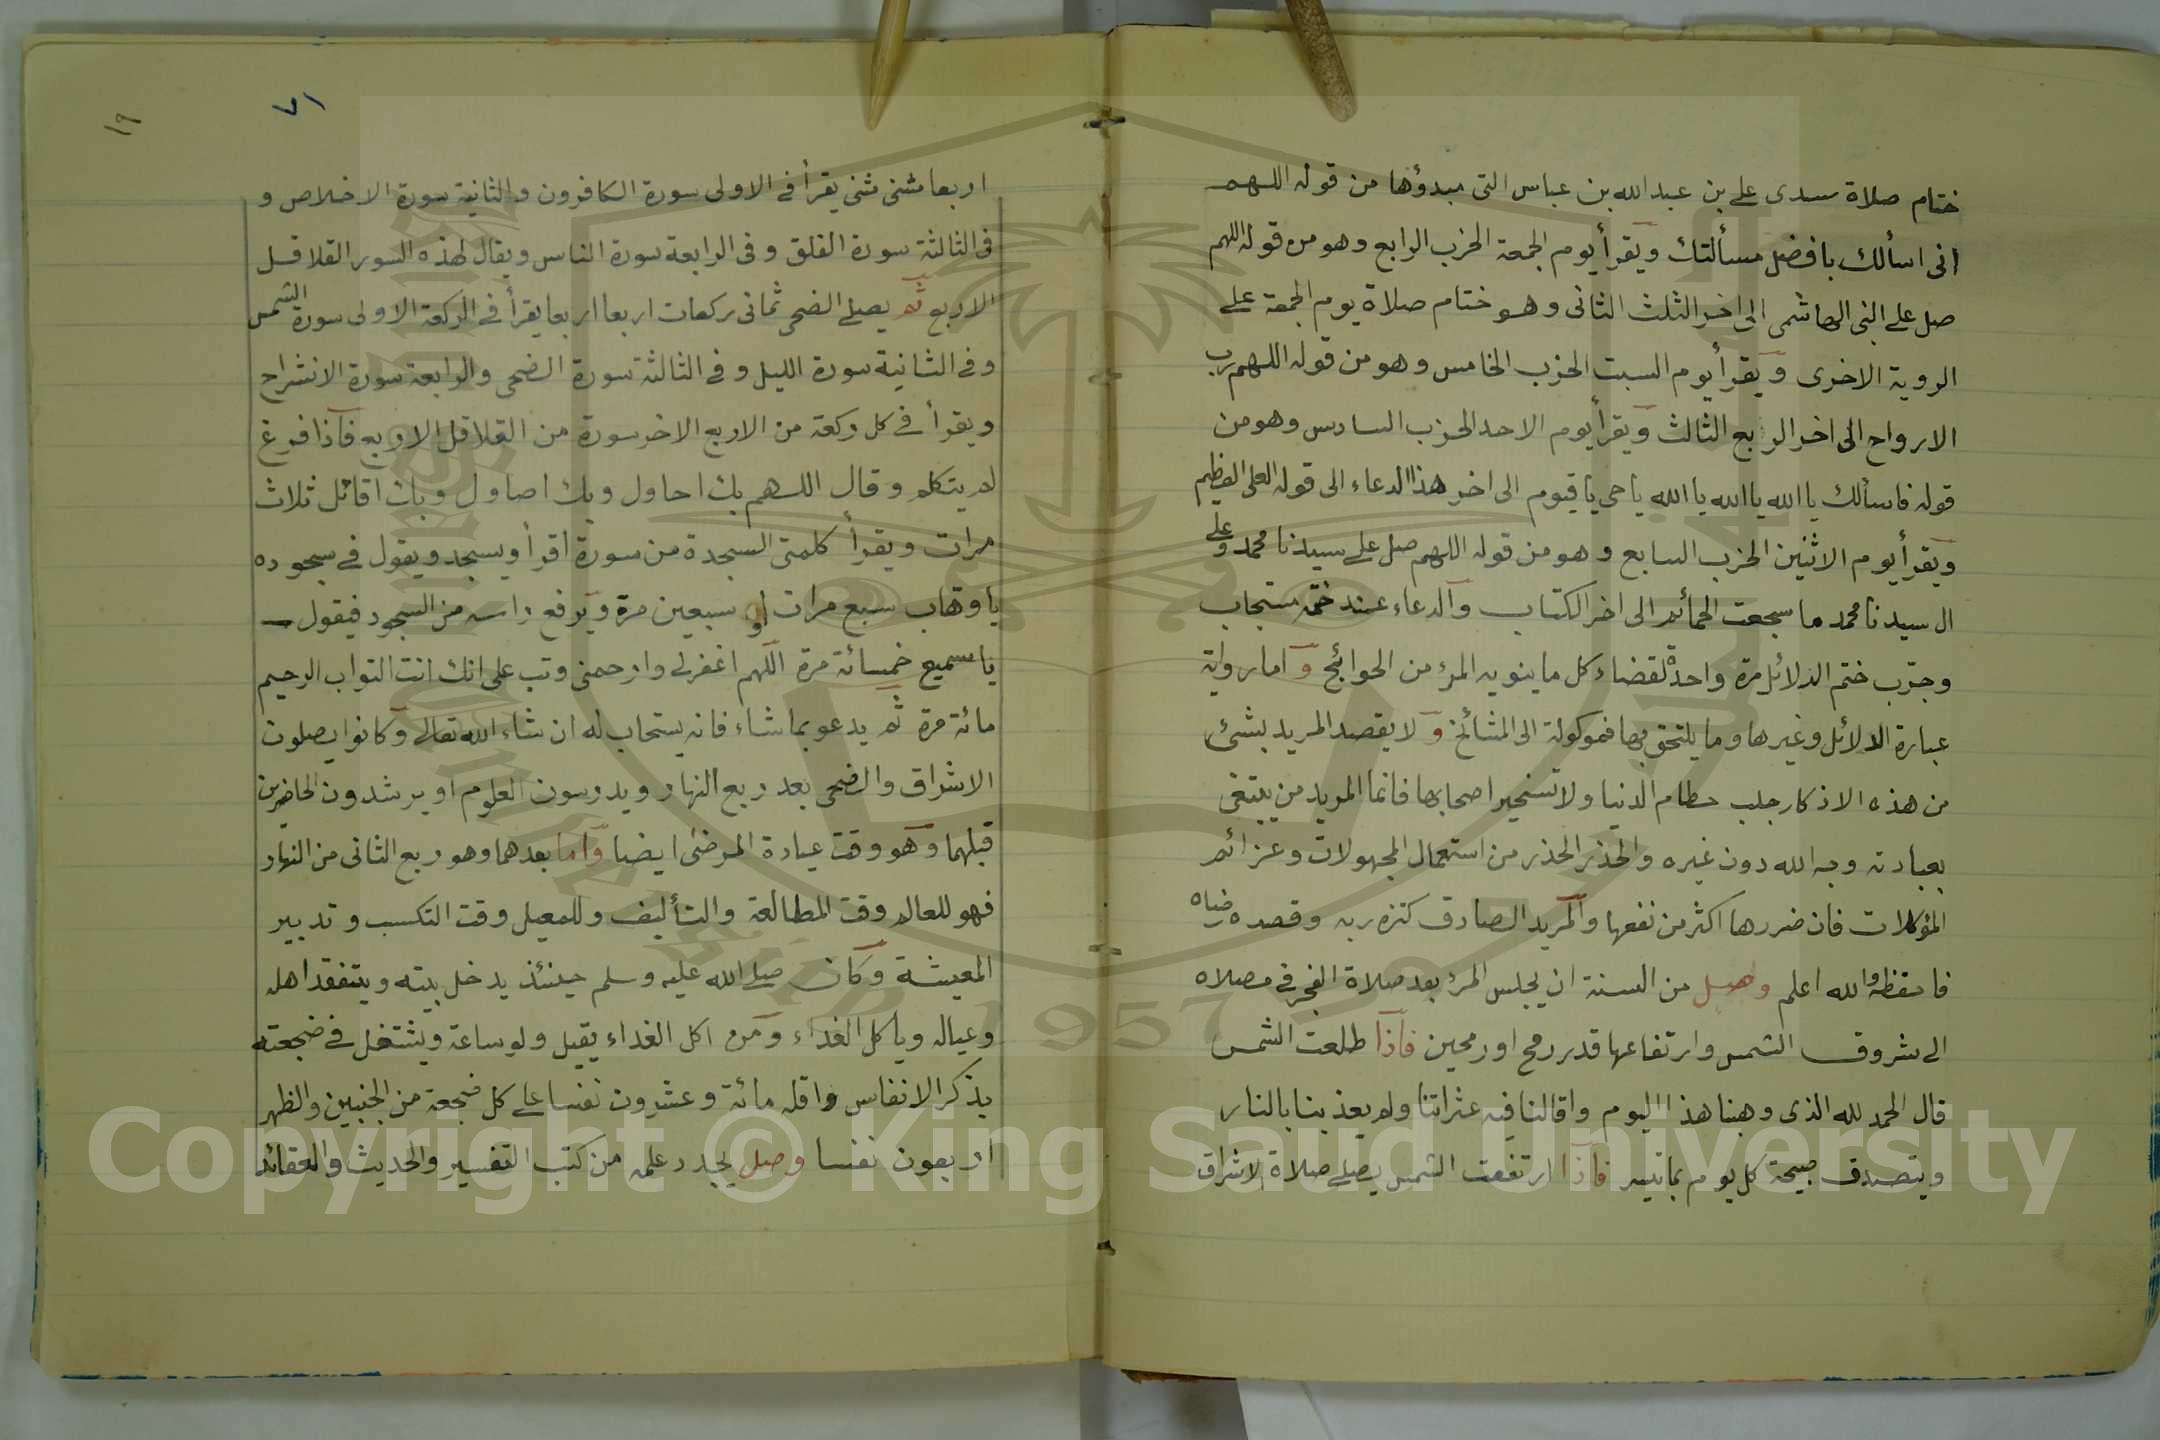 ختام صلاة سيدى على بن عبد الله بن عباس التى مبدؤها من قوله اللهم
انى اسألك بافضل مسألتك ويقرأ يوم الجمعة الحزب الرابع وهو من قوله اللهم
صل على النبى الهاشمى الى اخر الثلث الثانى وهو ختام صلاة يوم الجمعة على
الروية الاخرى ويقرأ يوم السبت الحزب الخامس وهو من قوله اللهم رب
الارواح الى اخر الربع الثالث ويقرأ يوم الاحد الحزب السادس وهو من
قوله فاسألك يا الله يا الله يا الله يا حى يا قيوم الى اخر هذا الدعاء الى قوله العلى العظيم
ويقرأ يوم الاثنين الحزب السابع وهو من قوله اللهم صل على سيدنا محمد وعلى
ال سيدنا محمد ما سجعت الحمائم الى اخر الكتاب والدعاء عند ختمه مستجاب
وجرّب ختم الدلائل مرة واحدة لقضاء كل ما ينويه المرء من الحوائج و اما رواية
عبارة الدلائل وغيرها وما يلتحق بها فموكولة الى المشائخ و لا يقصد المريد بشئ
من هذه الاذكار جلب حطام الدنيا ولا تسخير اصحابها فانما المريد من يبتغى
بعبادته وجه الله دون غيره والحذر الحذر من استعمال المجهولات وعزائم
المؤكلات فان ضررها اكثر من نفعها والمريد الصادق كنزه ربه وقصده رضاه
فاحفظه والله اعلم وصل من السنة ان يجلس المرء بعد صلاة الفجر فى مصلاه
الى شروق الشمس وارتفاعها قدر رمح او رمحين فاذا طلعت الشمس
قال الحمد لله الذى وهبنا هذا اليوم واقالنا فيه عثراتنا ولم يعذبنا بالنار
ويتصدق صبيحة كل يوم بما تيسر فاذا ارتفعت الشمس يصلى صلاة الاشراق
٧١
١٩
اربعا مثنى مثنى يقرأ فى الاولى سورة الكافرون والثانية سورة الاخلاص و
فى الثالثة سورة الفلق وفى الرابعة سورة الناس ويقال لهذه السور القلاقل
الاربع ثم يصلى الضحى ثمانى ركعات اربعا اربعا يقرأ فى الركعة الاولى سورة الشمس
وفى الثانية سورة الليل وفى الثالثة سورة الضحى والرابعة سورة الانشراح
ويقرأ فى كل ركعة من الاربع الاخر سورة من القلاقل الاربع فاذا فرغ
لم يتكلم وقال اللهم بك احاول وبك اصاول وبك اقاتل ثلاث
مرات ويقرأ كلمتى السجدة من سورة اقرأ ويسجد ويقول فى سجوده
يا وهاب سبع مرات او سبعين مرة ويرفع راسه من السجود فيقول
يا سميع خمسائة مرة اللهم اغفر لى وارحمنى وتب على انك انت التواب الرحيم
مائة مرة ثم يدعو بما شاء فانه يستجاب له ان شاء الله تعالى وكانوا يصلون
الاشراق والضحى بعد ربع النهار ويدرسون العلوم او يرشدون الحاضرين
قبلهما وهو وقت عيادة المرضى ايضا واما بعدهما وهو ربع الثانى من النهار
فهو للعالم وقت المطالعة والتأليف وللمعيل وقت التكسب وتدبير
المعيشة وكان صلى الله عليه وسلم حينئذ يدخل بيته ويتفقد اهله
وعياله وياكل الغداء ومن اكل الغداء يقيل ولو ساعة ويشتغل فى ضجعته
بذكر الانفاس واقله مائة وعشرون نفسا على كل ضجعة من الجنبين والظهر
اربعون نفسا وصل يجدد علمه من كتب التفسير والحديث والعقائد
Copyright © King Saud University
1957